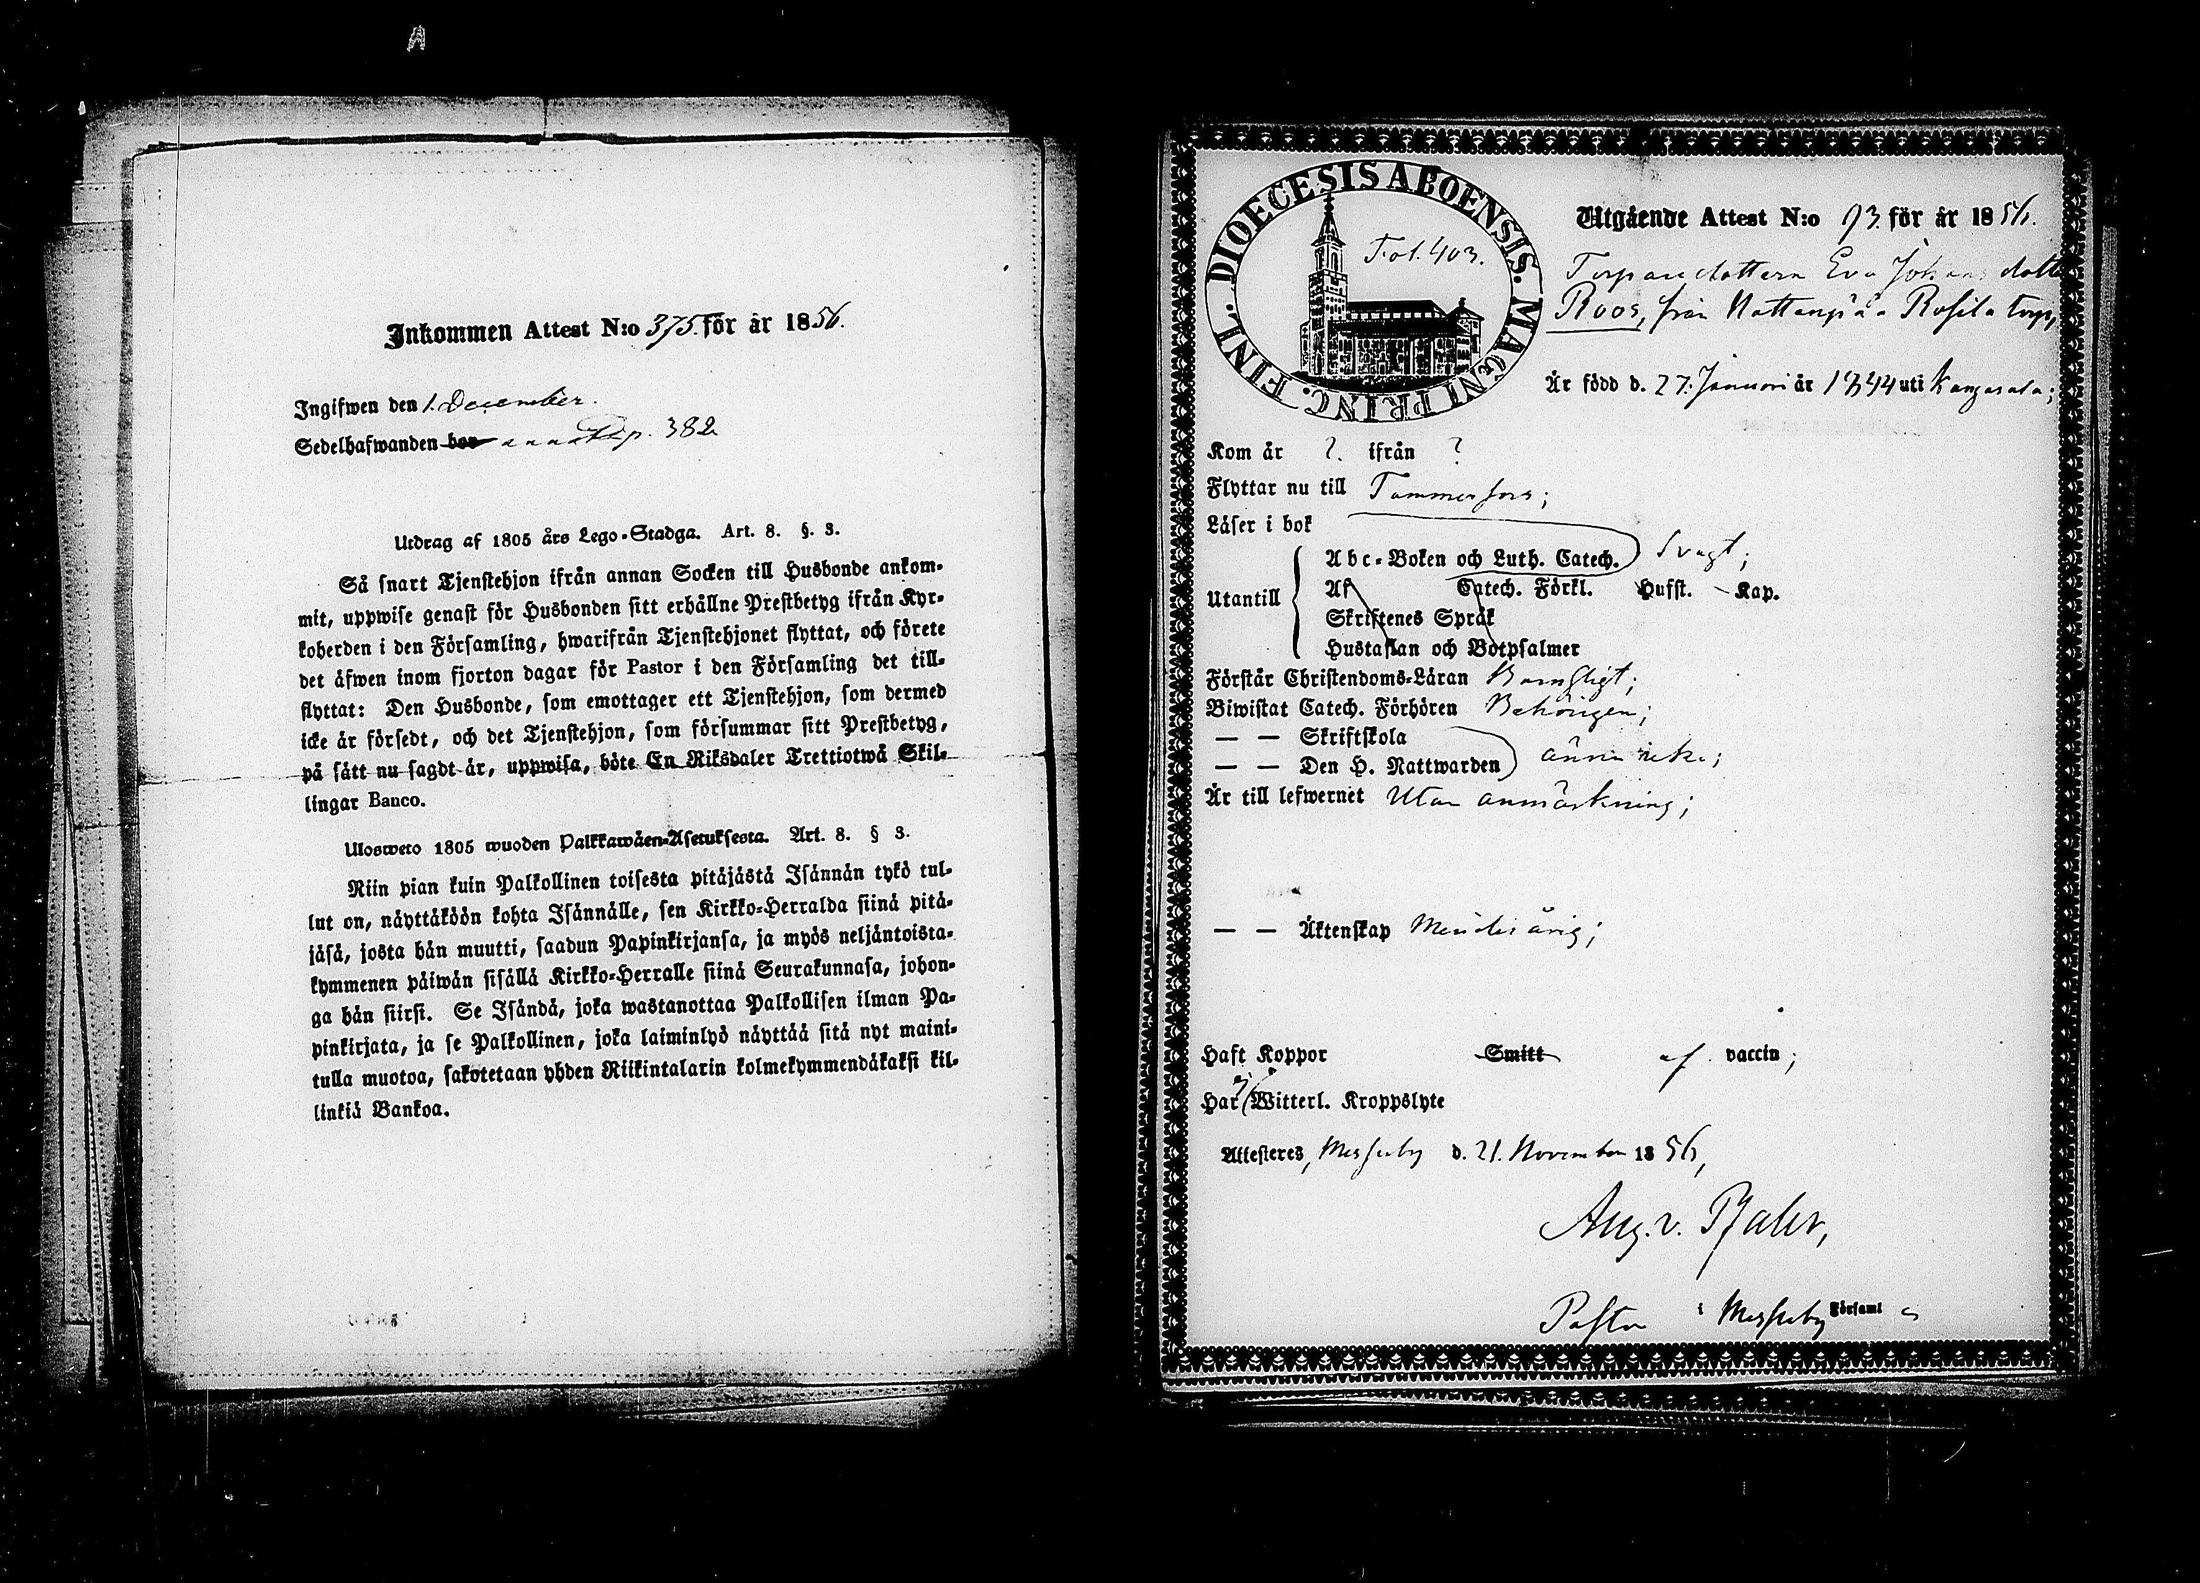 Inkommen Attest N:o 375. för år 1856.
Ingifwen den 1. December.
Sedelhafwanden bor p. 382
Utdrag af 1805 års Lego-Stadga. Art. 8. §. 3.
Så snart Tjenstehjon ifrån annan Socken till Husbonde ankom-
mit, uppwise genast för Husbonden sitt erhållne Prestbetyg ifrån Kyr-
koherden i den Församling, hwarifrån Tjenstehjonet flyttat, och förete
det äfwen inom fjorton dagar för Pastor i den Församling det till-
flyttat: Den Husbonde, som emottager ett Tjenstehjon, som dermed
icke är försedt, och det Tjenstehjon, som försummar sitt Prestbetyg,
på sätt nu sagdt är, uppwisa, böte En Riksdaler Trettiotwå Skil-
lingar Banco.
Ulosweto 1805 wuoden Palkkawäen-Asetuksesta. Art. 8. § 3.
Niin pian kuin Palkollinen toisesta pitäjästä Isännän tykö tul-
lut on, näyttäköön kohta Isännälle, sen Kirkko-Herralda siinä pitä-
jäsä, josta hän muutti, saadun Papinkirjansa, ja myös neljäntoista-
kymmenen päiwän sisällä Kirkko-Herralle siinä Seurakunnasa, johon-
ga hän siirsi. Se Isändä, joka wastanottaa Palkollisen ilman Pa-
pinkirjata, ja se Palkollinen, joka laiminlyö näyttää sitä nyt maini-
tulla muotoa, sakotetaan yhden Riikintalarin kolmekymmendäkaksi kil-
linkiä Bankoa.
DIOECESIS ABOENSIS. MAGNI PRINC. FINL.
Fol. 403.
Utgående Attest N:o 93. för år 1856.
Torparedottern Eva Johansdotter
Roos, från Hattanpää Rosila torp,
Är född d. 27. Januari år 1844 uti Kangasala;
Kom år ?. ifrån ?
Flyttar nu till Tammerfors;
Läser i bok
Abc-Boken och Luth. Catech. Svagt;
Utantill Af Catech. Förkl. Hufst. Kap.
Skriftenes Språk
Hustaflan och Botpsalmer
Förstår Christendoms-Läran Barnsligt;
Biwistat Catech. Förhören Behörigen;
— — Skriftskola
— — Den H. Nattwarden ännu icke;
Är till lefwernet Utan anmärkning;
— — Äktenskap Minderårig;
Haft Koppor Smitt af vaccin;
Har ej Witterl. Kroppslyte
Attesteres, Messuby d. 21. November 1856,
Aug. v. Pfaler,
Pastor i Messuby Församl